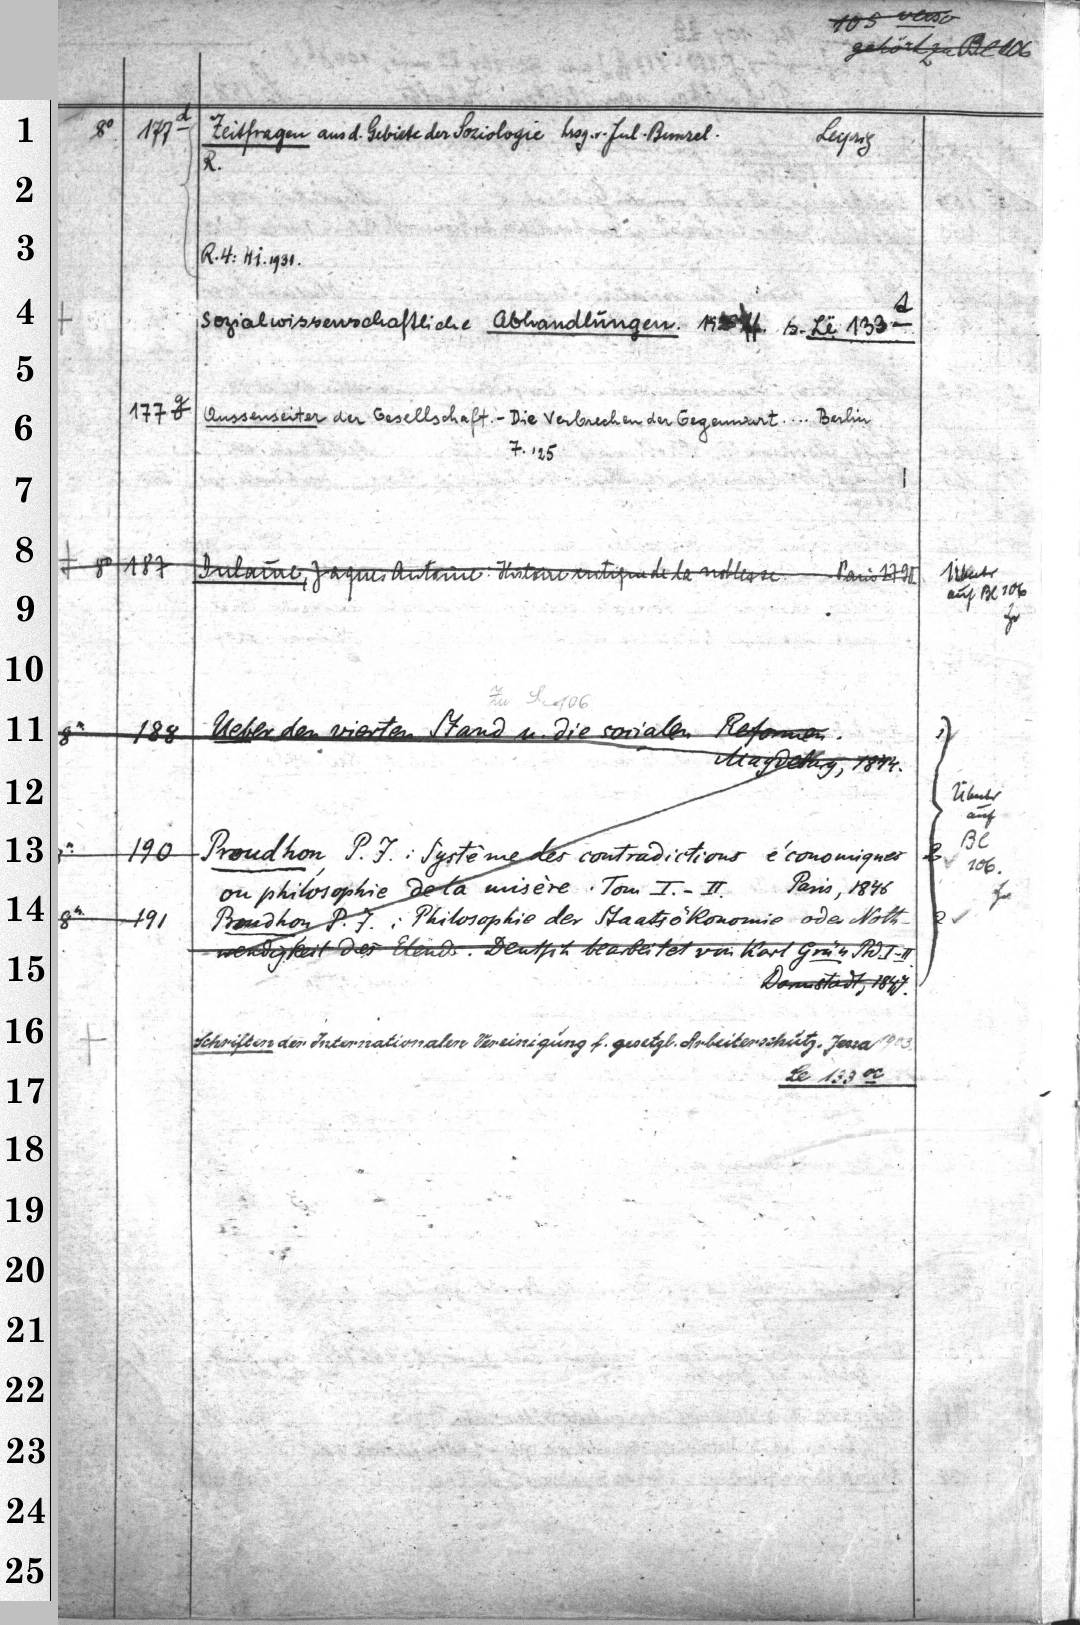 105 verso
gehört zu Bl 106
8° 177 d Zeitfragen aus d. Gebiete der Soziologie hrsg. v. Jul. Bunzel. Leipzig
R.
R. 4: H i. 1931.
Sozialwissenschaftliche Abhandlungen. s. Le 133 d
177 g Aussenseiter der Gesellschaft. - Die Verbrechen der Gegenwart .... Berlin
7. '25
8° 187 Dulaure, Jaques Antoine: Histoire critique de la noblesse. Paris
auf Bl 106
Zu S. 106
8° 188 Ueber den vierten Stand u. die socialen Reformen.
Magdeburg, 1844.
auf
Bl
106.
190 Proudhon, P. J.: Système des contradictions économiques
ou philosophie de la misère. Tom I. - II. Paris, 1846
8° 191 Proudhon P. J.: Philosophie der Staatsökonomie oder Noth-
wendigkeit des Elends. Deutsch bearbeitet von Karl Grün Bd. I-II
Darmstadt, 1847.
Schriften der Internationalen Vereinigung f. gesetzl. Arbeiterschutz. Jena 1903.
Le 133